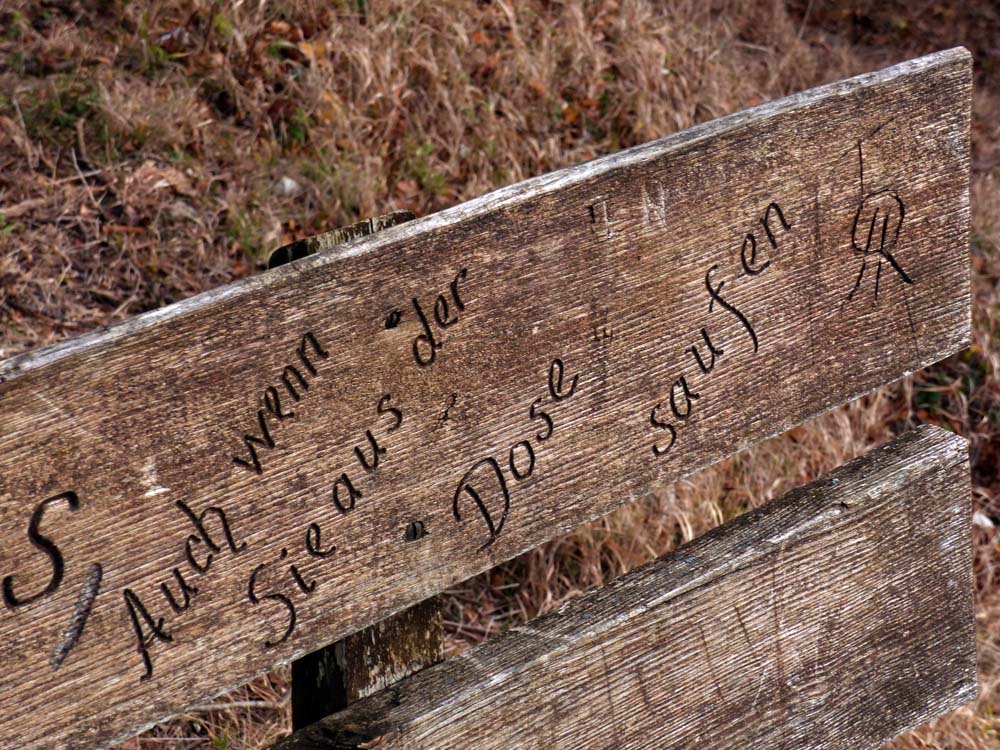 Auch wenn
Sie aus der
Dose
saufen